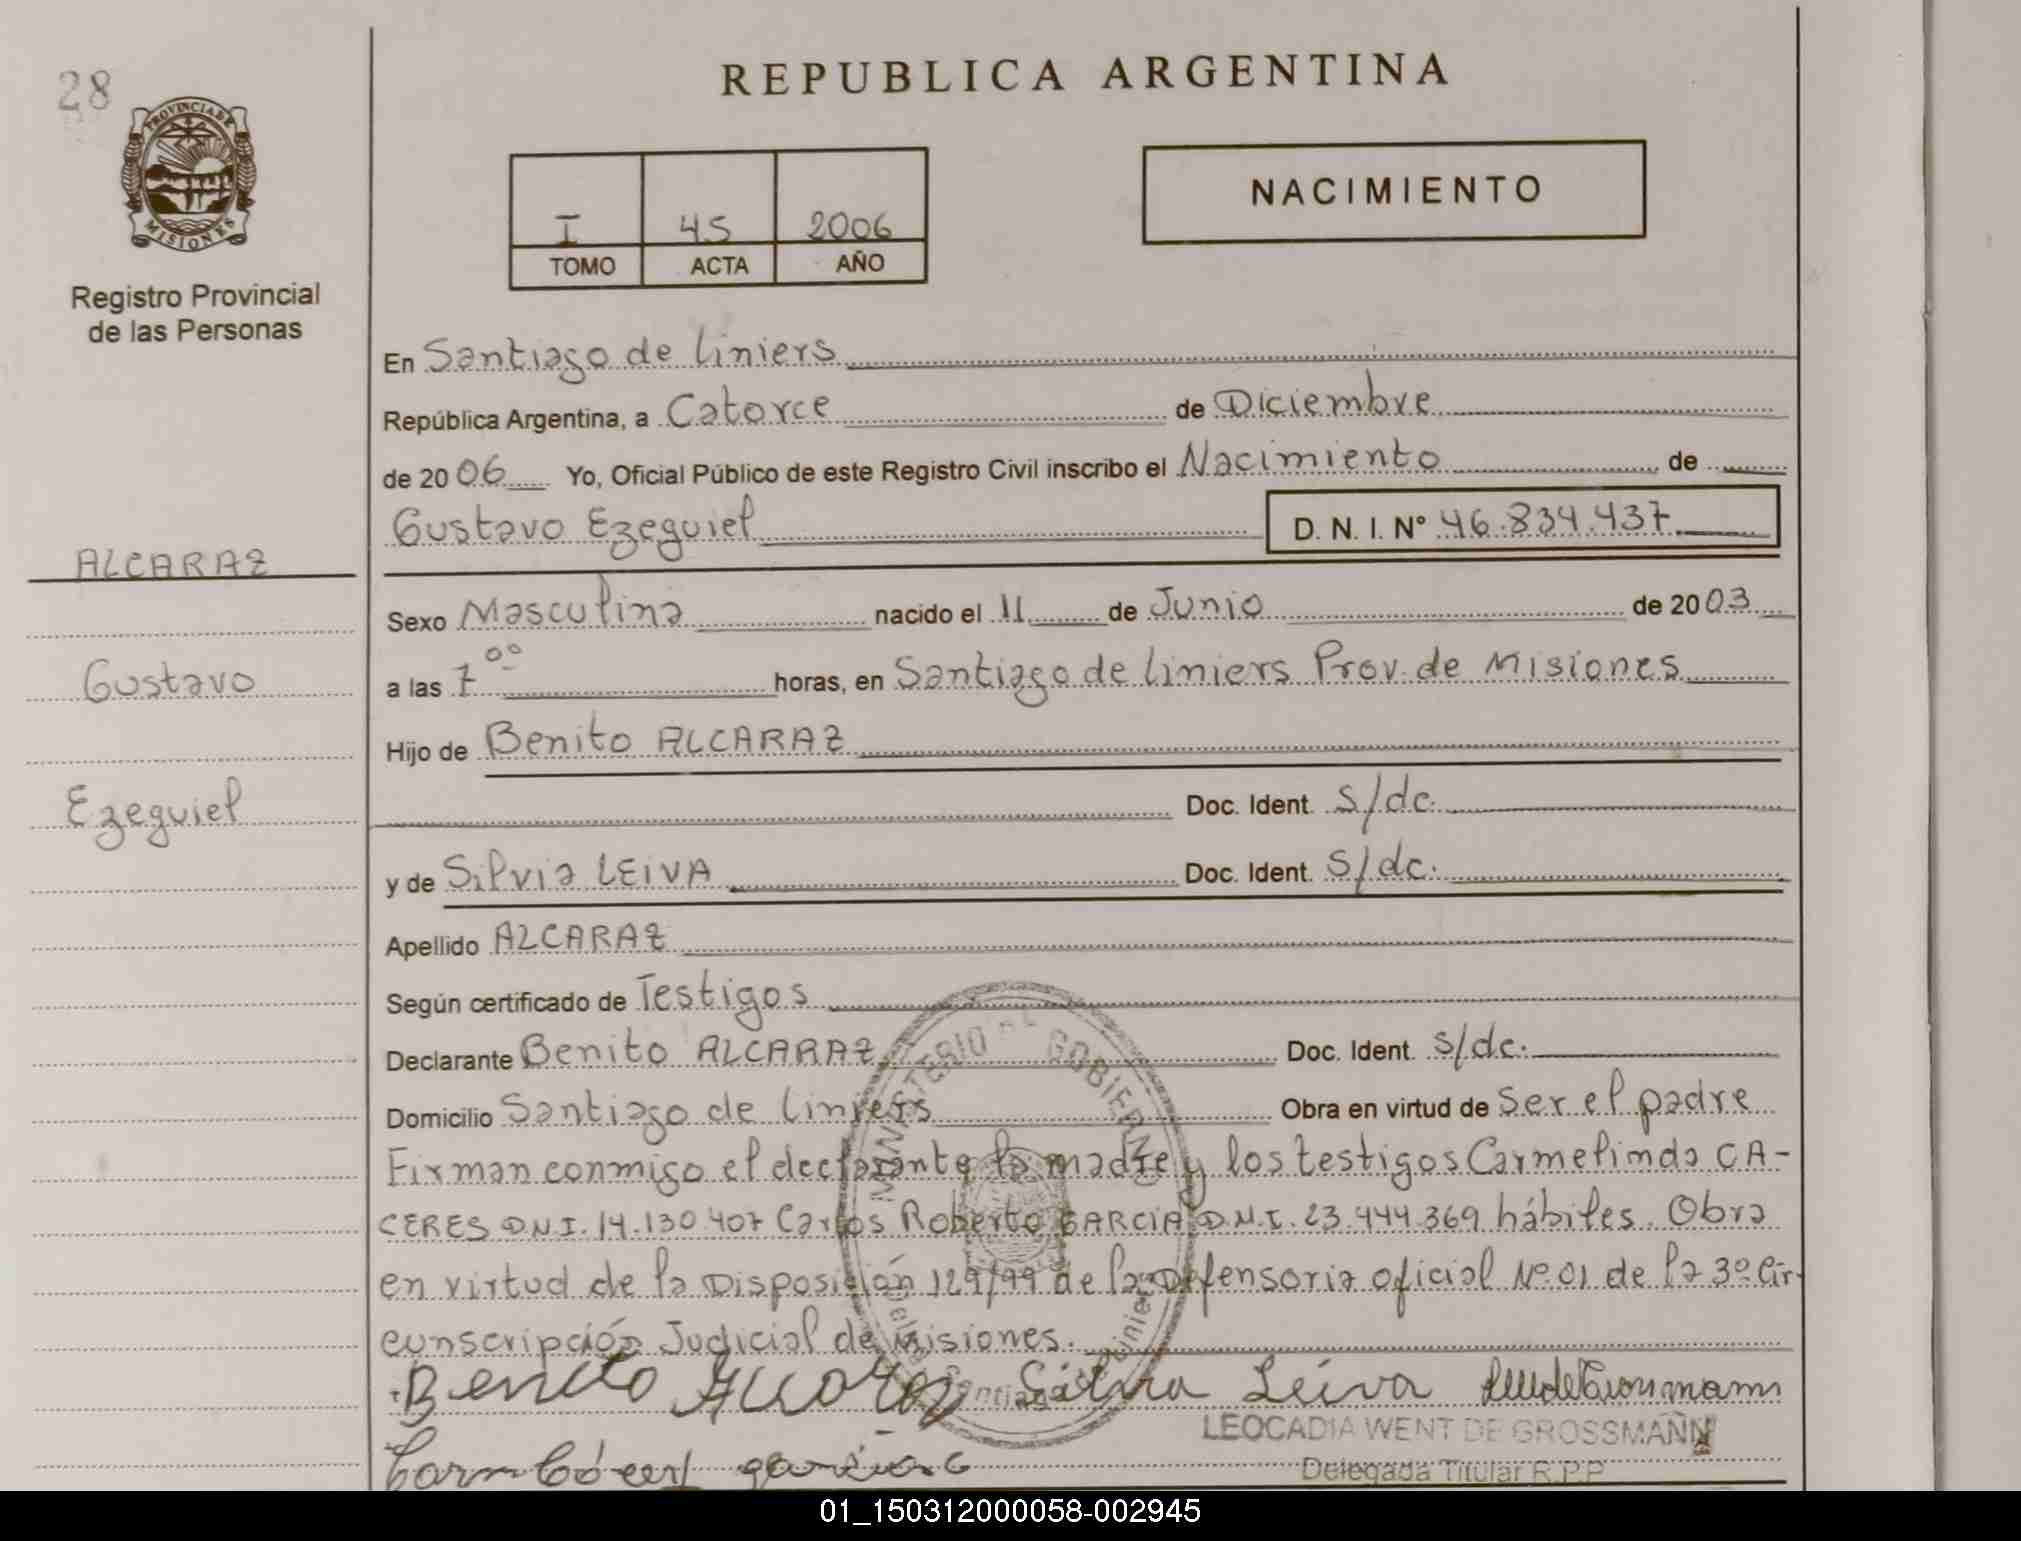 28
PROVINCIA DE
MISIONES
Registro Provincial
de las Personas
REPUBLICA ARGENTINA
I 45 2006
TOMO ACTA AÑO
NACIMIENTO
En Santiago de Liniers
República Argentina, a Catorce de Diciembre
de 2006 Yo, Oficial Público de este Registro Civil inscribo el Nacimiento de
Gustavo Ezequiel D. N. I. N° 46.834.437
ALCARAZ
Sexo Masculina nacido el 11 de Junio de 2003
Gustavo
a las 7 00 horas, en Santiago de Liniers Prov. de Misiones
Hijo de Benito ALCARAZ
Ezequiel
Doc. Ident. S/dc.
y de Silvia LEIVA Doc. Ident. S/dc.
Apellido ALCARAZ
Según certificado de Testigos
Declarante Benito ALCARAZ Doc. Ident. S/dc.
Domicilio Santiago de Liniers Obra en virtud de Ser el padre
Firman conmigo el declarante la madre y los testigos Carmelinda CA-
CERES D.N.I. 14.130.407 Carlos Roberto GARCIA D.N.I. 23.444.369 hábiles. Obra
en virtud de la Disposición 129/99 de la Defensoria oficial N°.01 de la 3° Cir-
cunscripción Judicial de Misiones.
MINISTERIO DE GOBIERNO
Benito Alcaraz Silvia Leiva
LEOCADIA WENT DE GROSSMANN
Delegada Titular R.P.P
01_150312000058-002945